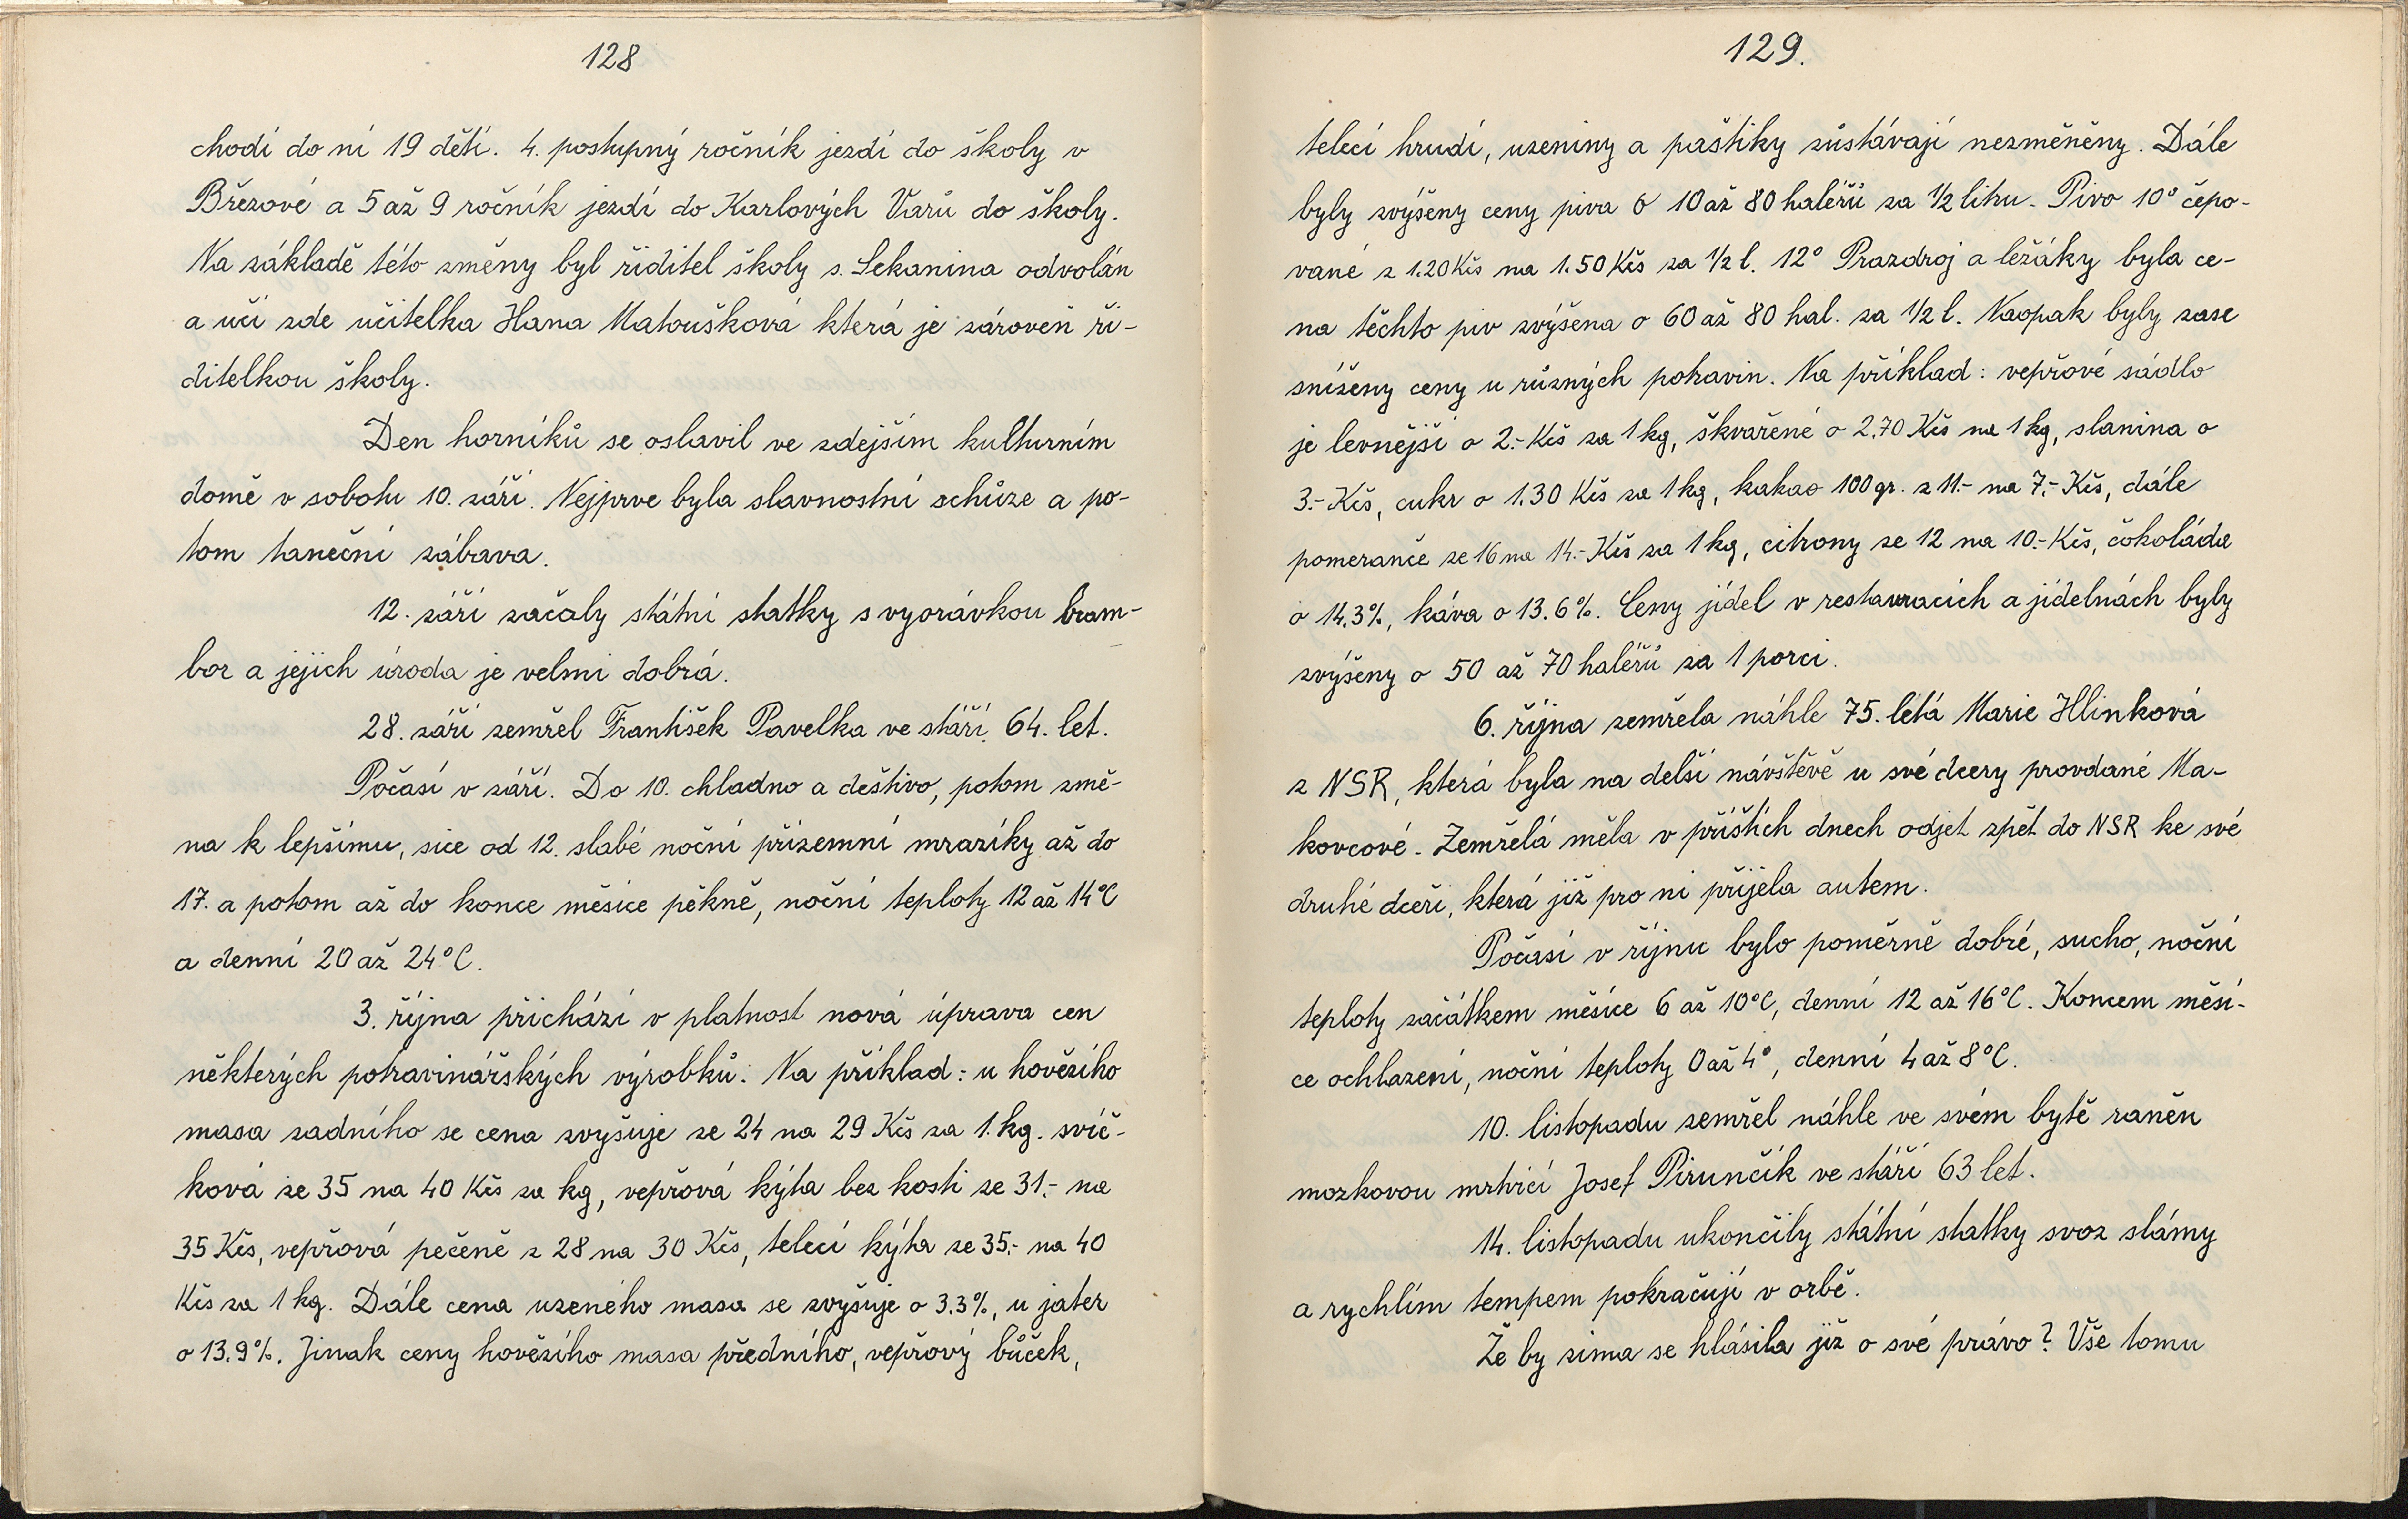 128
chodí do ní 19 dětí. 4. postupný ročník jezdí do školy v
Březové a 5 až 9 ročník jezdí do Karlových Varů do školy.
Na základě této změny byl řiditel školy s. Sekanina odvolán
a učí zde učitelka Hana Matoušková která je zároveň ři-
ditelkou školy.
Den horníků se oslavil ve zdejším kulturním
domě v sobotu 10. září. Nejprve byla slavnostní schůze a po-
tom taneční zábava.
12. září začaly státní statky s vyorávkou bram-
bor a jejich úroda je velmi dobrá.
28. září zemřel František Pavelka ve stáří 64. let.
Počasí v září. Do 10. chladno a deštivo, potom změ-
na k lepšímu, sice od 12. slabé noční přízemní mrazíky až do
17. a potom až do konce měsíce pěkně, noční teploty 12 až 14°C
a denní 20 až 24°C.
3. října přichází v platnost nová úprava cen
některých potravinářských výrobků. Na příklad: u hovězího
masa zadního se cena zvyšuje ze 24 na 29 Kčs za 1. kg. svíč-
ková ze 35 na 40 Kčs za kg, vepřová kýta bez kosti ze 31.- na
35 Kčs, vepřová pečeně z 28 na 30 Kčs, telecí kýta ze 35.- na 40
Kčs za 1 kg. Dále cena uzeného masa se zvyšuje o 3.3%, u jater
o 13.9%. Jinak ceny hovězího masa předního, vepřový bůček,
129.
telecí hrudí, uzeniny a paštiky zůstávají nezměněny. Dále
byly zvýšeny ceny piva o 10 až 80 haléřů za 1/2 litru. Pivo 10° čepo-
vané z 1.20 Kčs na 1.50 Kčs za 1/2 l. 12° Prazdroj a ležáky byla ce-
na těchto piv zvýšena o 60 až 80 hal. za 1/2 l. Naopak byly zase
sníženy ceny u různých potravin. Na příklad: vepřové sádlo
je levnější o 2.- Kčs za 1 kg, škvařené o 2.70 Kčs na 1 kg, slanina o
3.- Kčs, cukr o 1.30 Kčs za 1 kg, kakao 100 gr. z 11.- na 7.- Kčs, dále
pomeranče ze 16 na 14.- Kčs za 1 kg, citrony ze 12 na 10.- Kčs, čokoláda
o 14.3%, káva o 13.6%. Ceny jídel v restauracích a jídelnách byly
zvýšeny o 50 až 70 haléřů za 1 porci.
6. října zemřela náhle 75. letá Marie Hlinková
z NSR, která byla na delší návštěvě u své dcery provdané Ma-
kovcové. Zemřelá měla v příštích dnech odjet zpět do NSR ke své
druhé dceři, která již pro ni přijela autem.
Počasí v říjnu bylo poměrně dobré, sucho, noční
teploty začátkem měsíce 6 až 10°C, denní 12 až 16°C. Koncem měsí-
ce ochlazení, noční teploty 0 až 4°, denní 4 až 8°C.
10. listopadu zemřel náhle ve svém bytě raněn
mozkovou mrtvicí Josef Pirunčík ve stáří 63 let.
14. listopadu ukončily státní statky svoz slámy
a rychlím tempem pokračují v orbě.
Že by zima se hlásila již o své právo? Vše tomu